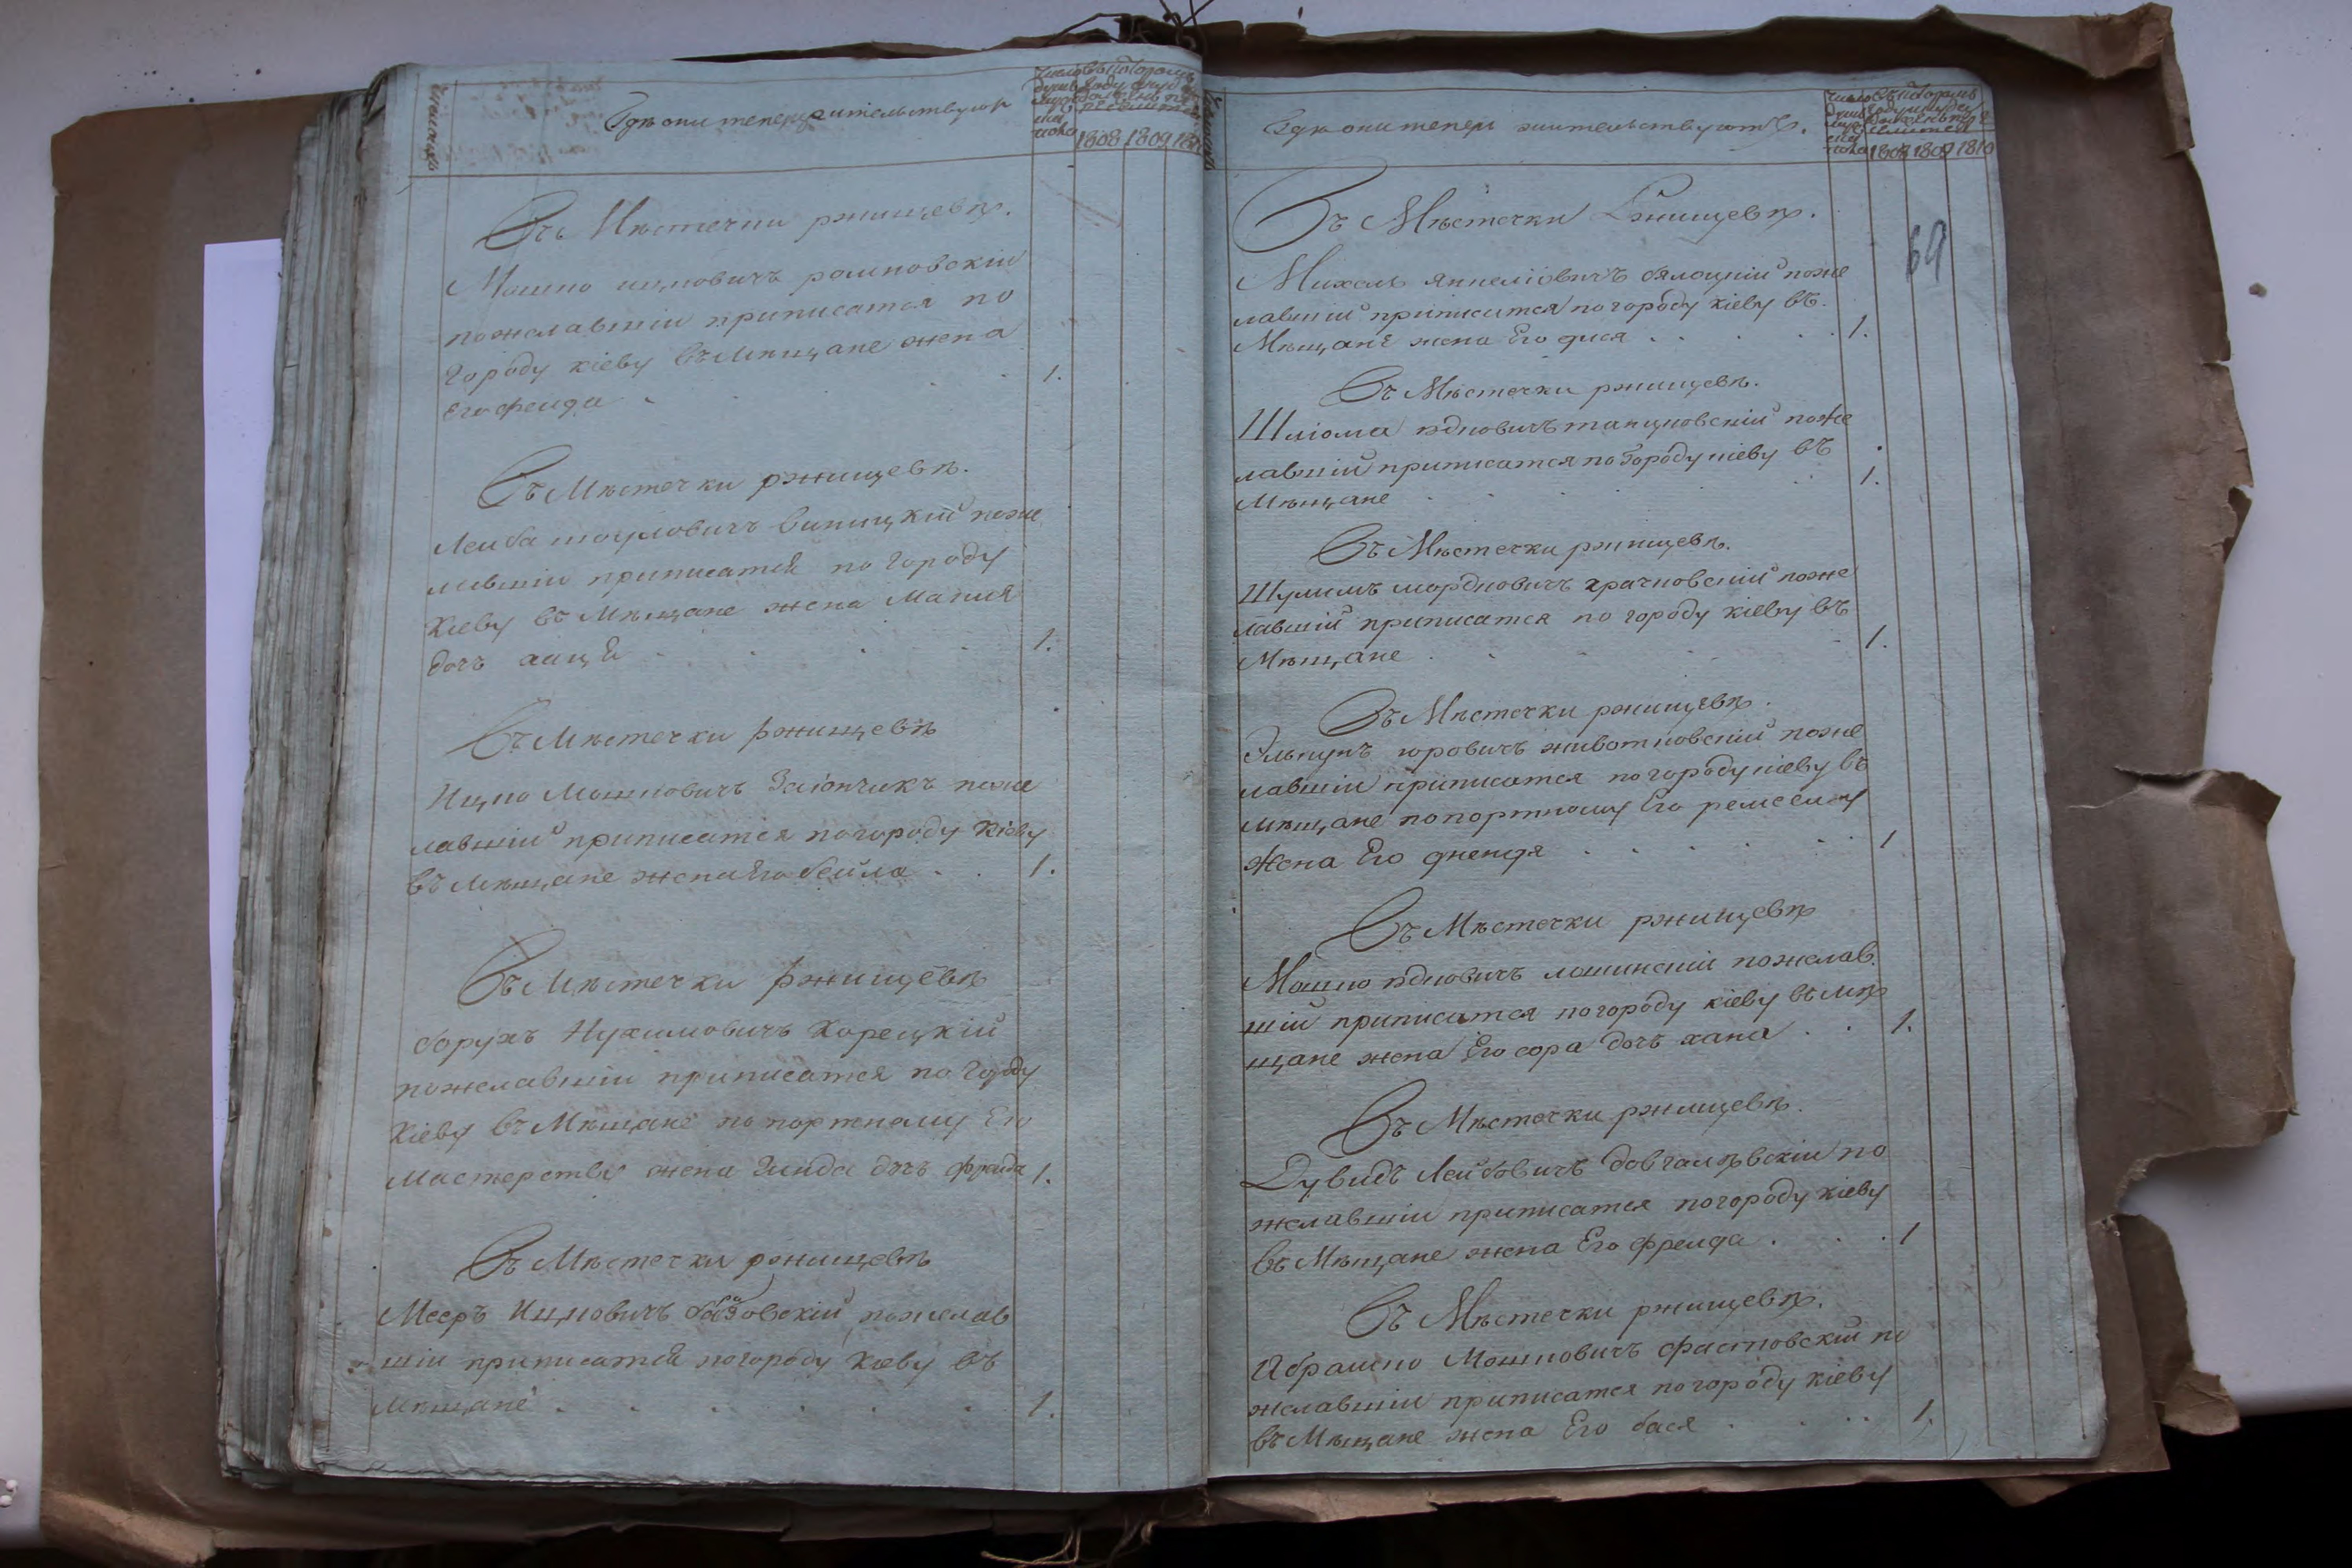 Гдѣ они теперь жительствуют
1808 1809
Въ Мѣстечки ржищевѣ.
Мошко ицковичъ
пожелавшіи приписатся по
городу кіеву въ Мѣщане жена
Его фейга 1.
Въ Мѣстечки ржищевѣ.
Лейба шоуловичъ Виницкий поже
лавшіи приписатся по городу
Кіеву въ Мѣщане жена
дочь 1.
Въ Мѣстечки ржищевѣ
Ицко Мошковичъ Заіончикъ поже
лавшій приписатся по городу Кіеву
въ мѣщане жена Его бейла 1.
Въ Мѣстечки ржищевѣ
борухъ Нухимовичъ Корецкій
пожелавшіи приписатся по городу
Кіеву въ Мѣщане по портному Его
мастерству жена Гинда дочь фрейда 1.
Въ Мѣстечки ржищевѣ
Мееръ Ицковичъ пожелав
шіи приписатся по городу Кіеву въ
мѣщане 1.
Гдѣ они теперь жительствуютъ.
1808 1809 1810
69
Въ Мѣстечки Ржищевѣ.
Михель Янкеліовичъ бялоцкій поже
лавшій приписатся по городу кіеву въ
Мѣщане жена Его 1.
Въ Мѣстечки ржищевѣ.
Шліома поже
лавшій приписатся по городу кіеву въ
Мѣщане 1.
Въ Мѣстечки ржищевѣ.
Шулимъ мордковичъ поже
лавшій приписатся по городу кіеву въ
Мѣщане 1.
Въ Мѣстечки ржищевѣ.
Элькунъ юровичъ животновскій поже
лавшіи приписатся по городу кіеву въ
мѣщане по портному Его ремеслу
жена Его 1
Въ Мѣстечки ржищевѣ
Мошко лошинскій пожелав
шій приписатся по городу кіеву въ мѣ
щане жена Его сора дочь хана 1.
Въ Мѣстечки ржищевѣ.
Дувидъ Лейбовичъ довгалѣвскіи по
желавшіи приписатся по городу кіеву
въ Мѣщане жена Его фрейда 1
Въ Мѣстечки ржищевѣ.
Абрамко Мошковичъ фастовскій по
желавшіи приписатся по городу кіеву
въ Мѣщане жена Его бася 1.